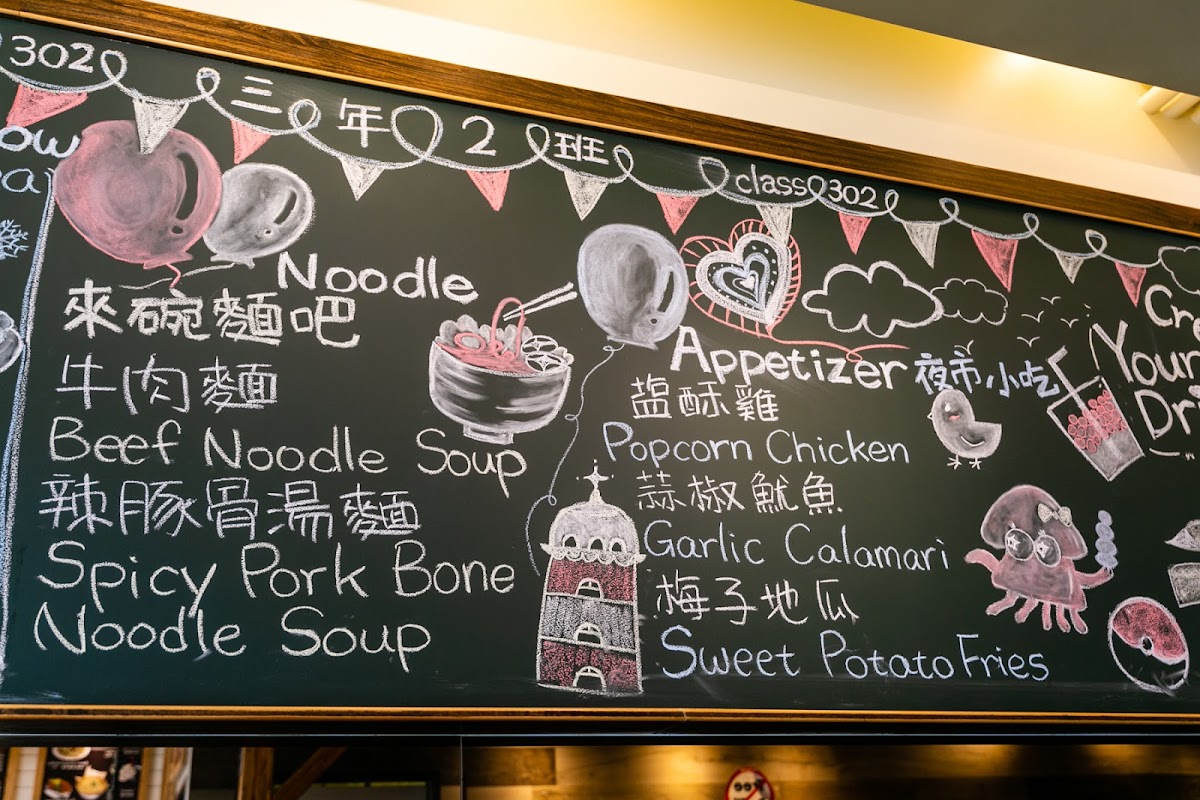 302
三年2班
class 302
Noodle
來碗麵吧
牛肉麵
Beef Noodle Soup
辣豚骨湯麵
Spicy Pork Bone
Noodle Soup
Appetizer 夜市小吃
塩酥雞
Popcorn Chicken
蒜椒魷魚
Garlic Calamari
梅子地瓜
Sweet Potato Fries
Your